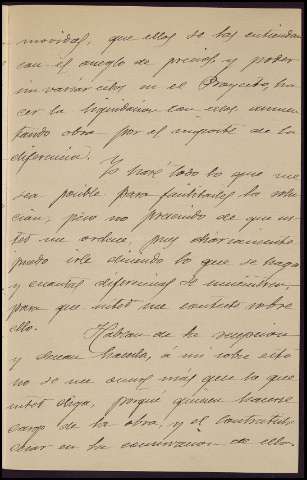 movidas, que ellos se las entiendan
con el arreglo de precios y poder
in variar estos en el Proyecto, ha
cer la liquidacion con ellos aumen
tando obra por el importe de la
diferencia.
Yo haré todo lo que me
sea posible para facilitarles la solu
cion, pero no prescindo de que us
ted me ordene, pues diariamente
puedo irle diciendo lo que se haga
y cuantas diferencias se encuentren,
para que usted me conteste sobre
ello.
Hablan de la recepcion
y desean hacerla, á mi sobre esto
no se me ocurre más que lo que
usted diga, porqué quieren hacerse
cargo de la obra, y el Contratista
en la de ellos.